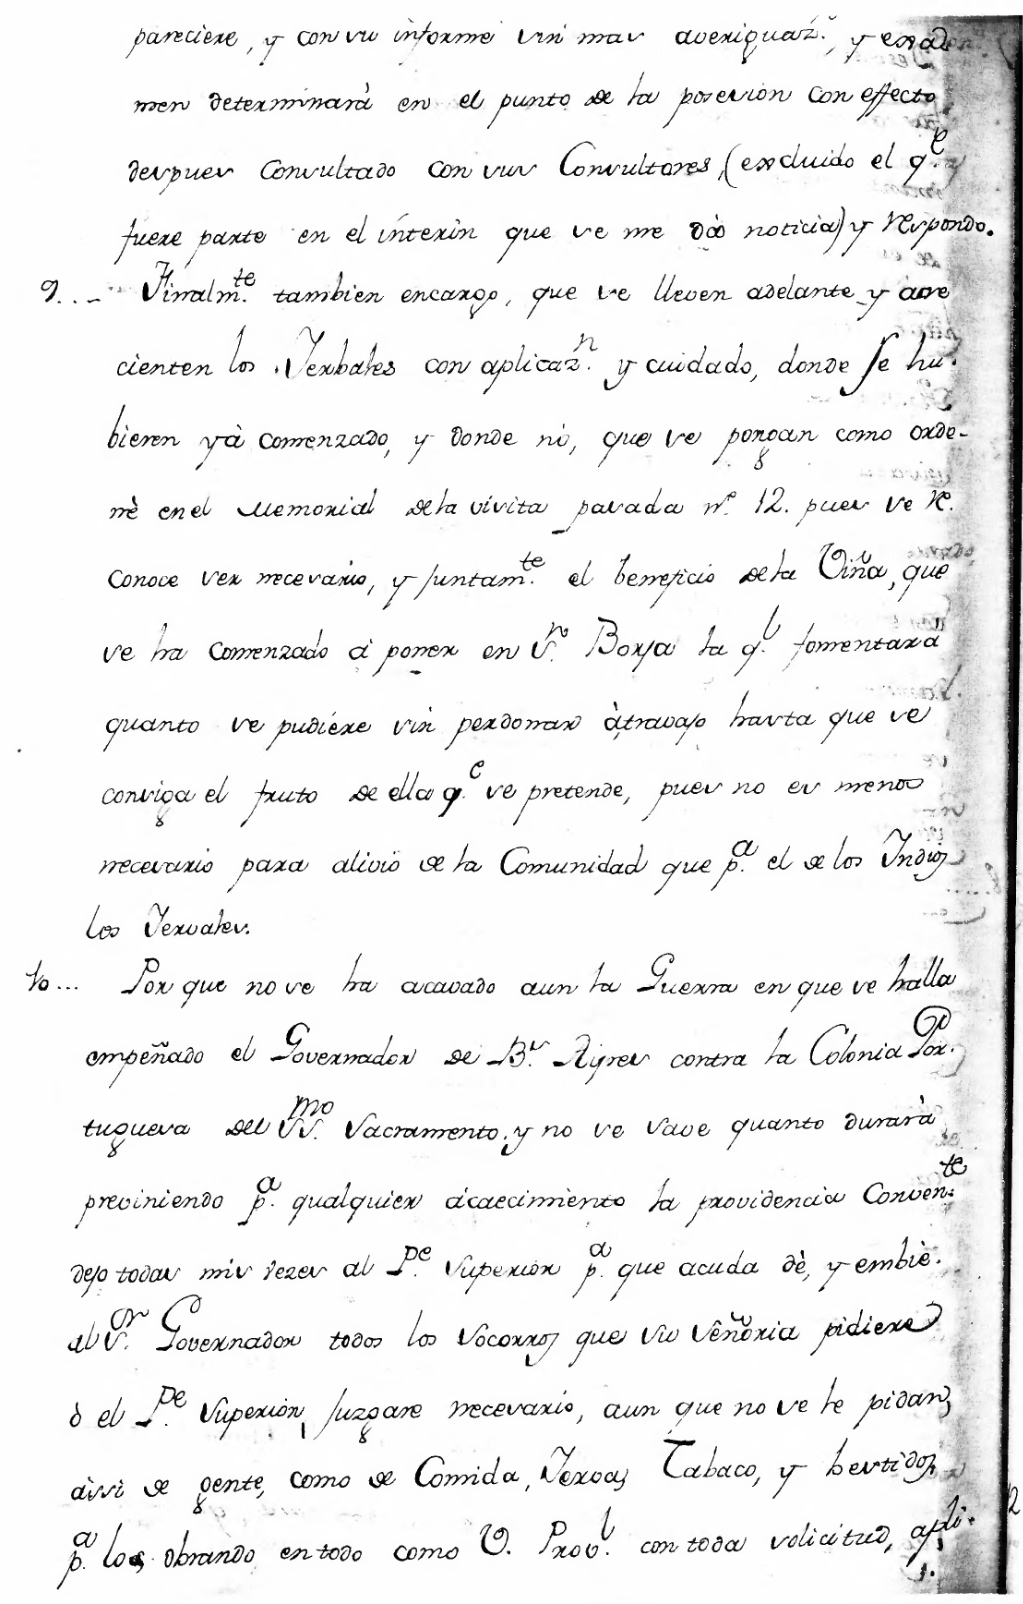 pareciere, y con su informe sin mas averiguaz.ⁿ, y exa
men determinarà en el punto de la posesion con effecto
despues Consultado con sus Consultores, (excluido el q.ᵉ
fuere parte en el ínterin que se me dà noticia) y respondo.
9... Finalm.ᵗᵉ tambien encargo, que se lleven adelante y acre
cienten los Yerbales con aplicaz.ⁿ y cuidado, donde se hu-
bieren yà comenzado, y donde nò, que se pongan como orde-
nè en el Memorial de la visita pasada nº 12. pues se re-
conoce ser necesario, y juntam.ᵗᵉ el beneficio de la Viña, que
se ha comenzado à poner en Sⁿ. Borja la q.ˡ fomentara
quanto se pudiére sin perdonar àtravajo hasta que se
consiga el fruto de ella q.ᵉ se pretende, pues no es menos
necesario para alivio de la Comunidad que p.ᵃ el de los Indios
los Yervales.
10... Por que no se ha acavado aun la Guerra en que se halla
empeñado el Governador de B.ˢ Ayres contra la Colonia Por-
tuguesa del SS.ᵐᵒ Sacramento, y no se save quanto durarà
previniendo p.ᵃ qualquier acaecimiento la providencia Conven.ᵗᵉ
dejo todas mis vezes al P.ᵉ Superior p.ᵃ que acuda dè, y embiè.
al S.ᵒʳ Governador todos los socorros que su señoria pidiere
ò el P.ᵉ Superior, juzgare necesario, aun que no se le pidan,
àssi de gente, como de Comida, Yervas, Tabaco, y bestidos,
p.ᵃ los, obrando en todo como V. Prov.ˡ con toda solicitud, apli-